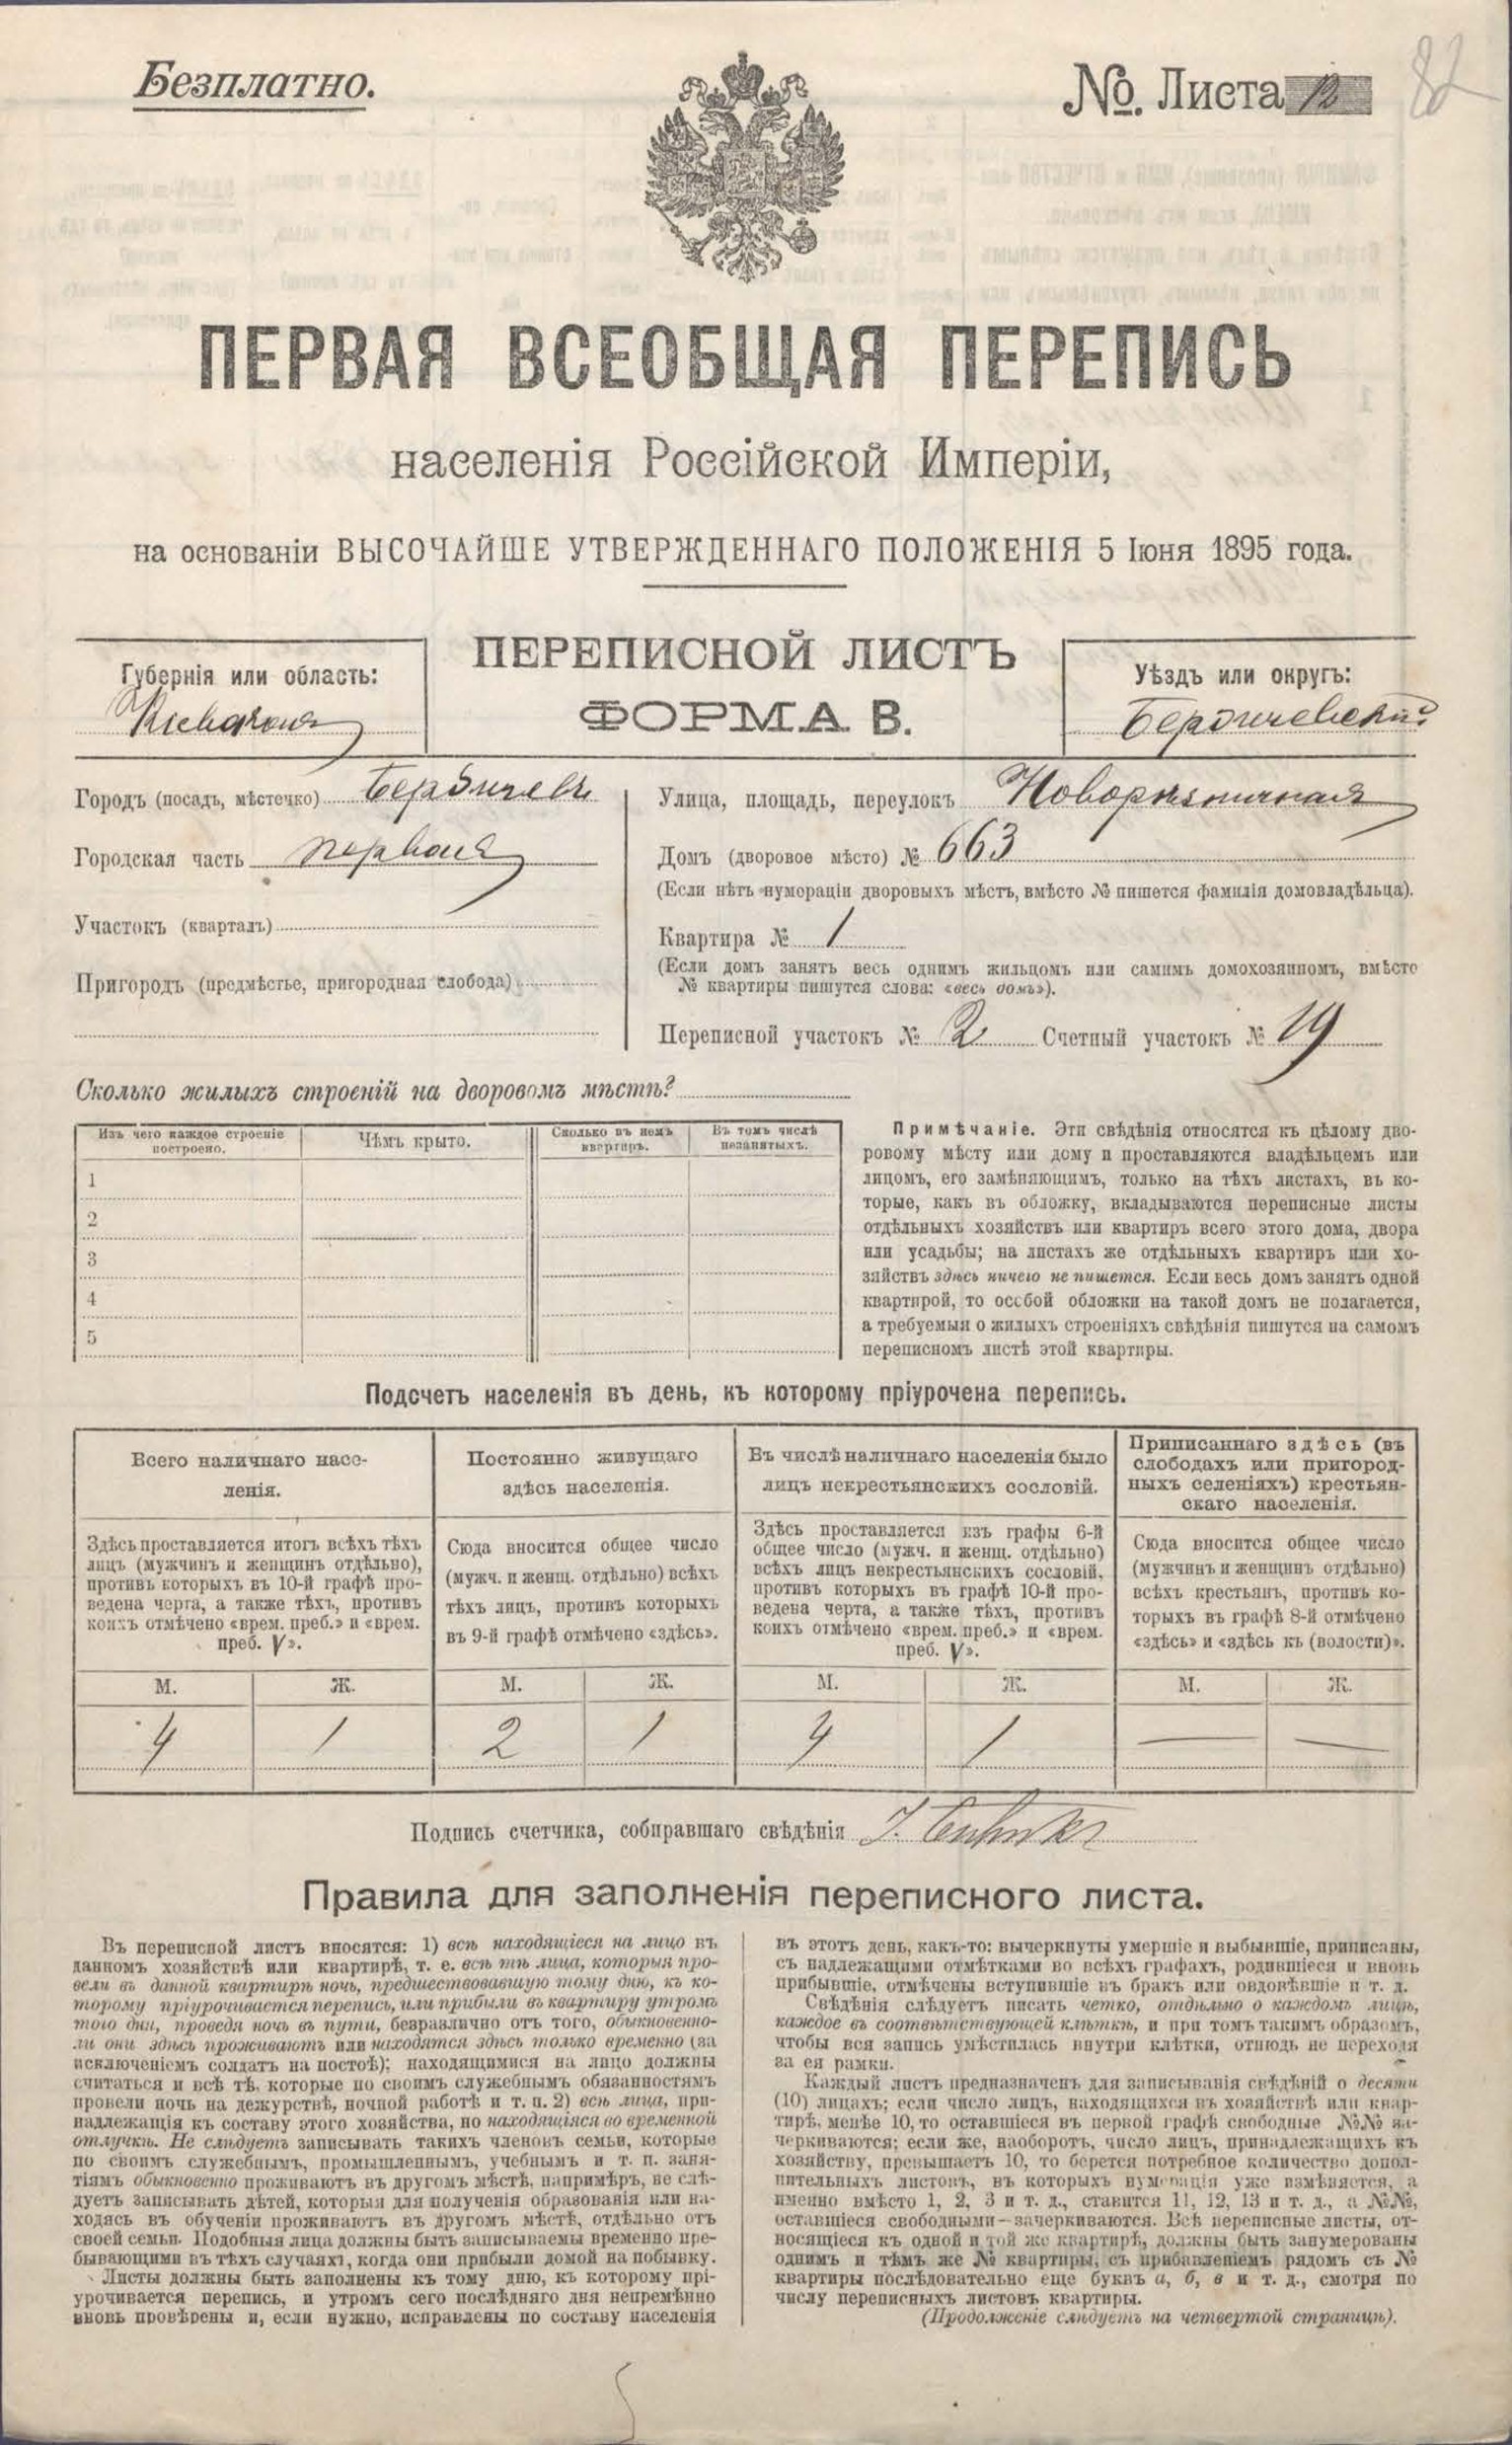 Безплатно.
№. Листа 12
82
ПЕРВАЯ ВСЕОБЩАЯ ПЕРЕПИСЬ
населенія Россійской Имперіи,
на основаніи ВЫСОЧАЙШЕ УТВЕРЖДЕННАГО ПОЛОЖЕНІЯ 5 Іюня 1895 года.
ПЕРЕПИСНОЙ ЛИСТЪ
ФОРМА В.
Губернія или область:
Кіевская
Уѣздъ или округъ:
Бердичевскій
Городъ (посадъ, мѣстечко) Бердичевъ
Городская часть первая
Участокъ (кварталъ)
Пригородъ (предмѣстье, пригородная слобода)
Улица, площадь, переулокъ
Домъ (дворовое мѣсто) № 663
(Если нѣтъ нумораціи дворовыхъ мѣстъ, вмѣсто № пишется фамилія домовладѣльца).
Квартира № 1
(Если домъ занятъ весь однимъ жильцомъ или самимъ домохозяиномъ, вмѣсто
№ квартиры пишутся слова: «весь домъ»).
Переписной участокъ № 2 Счетный участокъ № 19
Сколько жилыхъ строеній на дворовомъ мѣстѣ?
Изъ чего каждое строеніе
построено.
Чѣмъ крыто.
Сколько въ немъ
квартиръ.
Въ томъ числѣ
незанятыхъ.
1
2
3
4
5
Примѣчаніе. Эти свѣдѣнія относятся къ цѣлому дво-
ровому мѣсту или дому и проставляются владѣльцемъ или
лицомъ, его замѣняющимъ, только на тѣхъ листахъ, въ ко-
торые, какъ въ обложку, вкладываются переписные листы
отдѣльныхъ хозяйствъ или квартиръ всего этого дома, двора
или усадьбы; на листахъ же отдѣльныхъ квартиръ или хо-
зяйствъ здѣсь ничего не пишется. Если весь домъ занятъ одной
квартирой, то особой обложки на такой домъ не полагается,
а требуемыя о жилыхъ строеніяхъ свѣдѣнія пишутся на самомъ
переписномъ листѣ этой квартиры.
Подсчетъ населенія въ день, къ которому пріурочена перепись.
Всего наличнаго насе-
ленія.
Здѣсь проставляется итогъ всѣхъ тѣхъ
лицъ (мужчинъ и женщинъ отдѣльно),
противъ которыхъ въ 10-й графѣ про-
ведена черта, а также тѣхъ, противъ
коихъ отмѣчено «врем. преб.» и «врем.
преб. V».
Постоянно живущаго
здѣсь населенія.
Сюда вносится общее число
(мужч. и женщ. отдѣльно) всѣхъ
тѣхъ лицъ, противъ которыхъ
въ 9-й графѣ отмѣчено «здѣсь».
Въ числѣ наличнаго населенія было
лицъ некрестьянскихъ сословій.
Здѣсь проставляется изъ графы 6-й
общее число (мужч. и женщ. отдѣльно)
всѣхъ лицъ некрестьянскихъ сословій,
противъ которыхъ въ графѣ 10-й про-
ведена черта, а также тѣхъ, противъ
коихъ отмѣчено «врем. преб.» и «врем.
преб. V».
Приписаннаго здѣсь (въ
слободахъ или пригород-
ныхъ селеніяхъ) крестьян-
скаго населенія.
Сюда вносится общее число
(мужчинъ и женщинъ отдѣльно)
всѣхъ крестьянъ, противъ ко-
торыхъ въ графѣ 8-й отмѣчено
«здѣсь» и «здѣсь къ (волости)».
М. Ж. М. Ж. М. Ж. М. Ж.
4 1 2 1 4 1 — —
Подпись счетчика, собиравшаго свѣдѣнія
Правила для заполненія переписного листа.
Въ переписной листъ вносятся: 1) всѣ находящіеся на лицо въ
данномъ хозяйствѣ или квартирѣ, т. е. всѣ тѣ лица, которыя про-
вели въ данной квартирѣ ночь, предшествовавшую тому дню, къ ко-
торому пріурочивается перепись, или прибыли въ квартиру утромъ
того дня, проведя ночь въ пути, безразлично отъ того, обыкновенно-
ли они здѣсь проживаютъ или находятся здѣсь только временно (за
исключеніемъ солдатъ на постоѣ); находящимися на лицо должны
считаться и всѣ тѣ, которые по своимъ служебнымъ обязанностямъ
провели ночь на дежурствѣ, ночной работѣ и т. п. 2) всѣ лица, при-
надлежащія къ составу этого хозяйства, но находящіяся во временной
отлучкѣ. Не слѣдуетъ записывать такихъ членовъ семьи, которые
по своимъ служебнымъ, промышленнымъ, учебнымъ и т. п. заня-
тіямъ обыкновенно проживаютъ въ другомъ мѣстѣ, напримѣръ, не слѣ-
дуетъ записывать дѣтей, которыя для полученія образованія или на-
ходясь въ обученіи проживаютъ въ другомъ мѣстѣ, отдѣльно отъ
своей семьи. Подобныя лица должны быть записываемы временно пре-
бывающими въ тѣхъ случаяхъ, когда они прибыли домой на побывку.
Листы должны быть заполнены къ тому дню, къ которому прі-
урочивается перепись, и утромъ сего послѣдняго дня непремѣнно
вновь провѣрены и, если нужно, исправлены по составу населенія
въ этотъ день, какъ-то: вычеркнуты умершіе и выбывшіе, приписаны,
съ надлежащими отмѣтками во всѣхъ графахъ, родившіеся и вновь
прибывшіе, отмѣчены вступившіе въ бракъ или овдовѣвшіе и т. д.
Свѣдѣнія слѣдуетъ писать четко, отдѣльно о каждомъ лицѣ,
каждое въ соотвѣтствующей клѣткѣ, и при томъ такимъ образомъ,
чтобы вся запись умѣстилась внутри клѣтки, отнюдь не переходя
за ея рамки.
Каждый листъ предназначенъ для записыванія свѣдѣній о десяти
(10) лицахъ; если число лицъ, находящихся въ хозяйствѣ или квар-
тирѣ, менѣе 10, то оставшіеся въ первой графѣ свободные №№ за-
черкиваются; если же, наоборотъ, число лицъ, принадлежащихъ къ
хозяйству, превышаетъ 10, то берется потребное количество допол-
нительныхъ листовъ, въ которыхъ нумерація уже измѣняется, а
именно вмѣсто 1, 2, 3 и т. д., ставится 11, 12, 13 и т. д., а №№,
оставшіеся свободными—зачеркиваются. Всѣ переписные листы, от-
носящіеся къ одной и той же квартирѣ, должны быть занумерованы
однимъ и тѣмъ же № квартиры, съ прибавленіемъ рядомъ съ №
квартиры послѣдовательно еще буквъ а, б, в и т. д., смотря по
числу переписныхъ листовъ квартиры.
(Продолженіе слѣдуетъ на четвертой страницѣ).